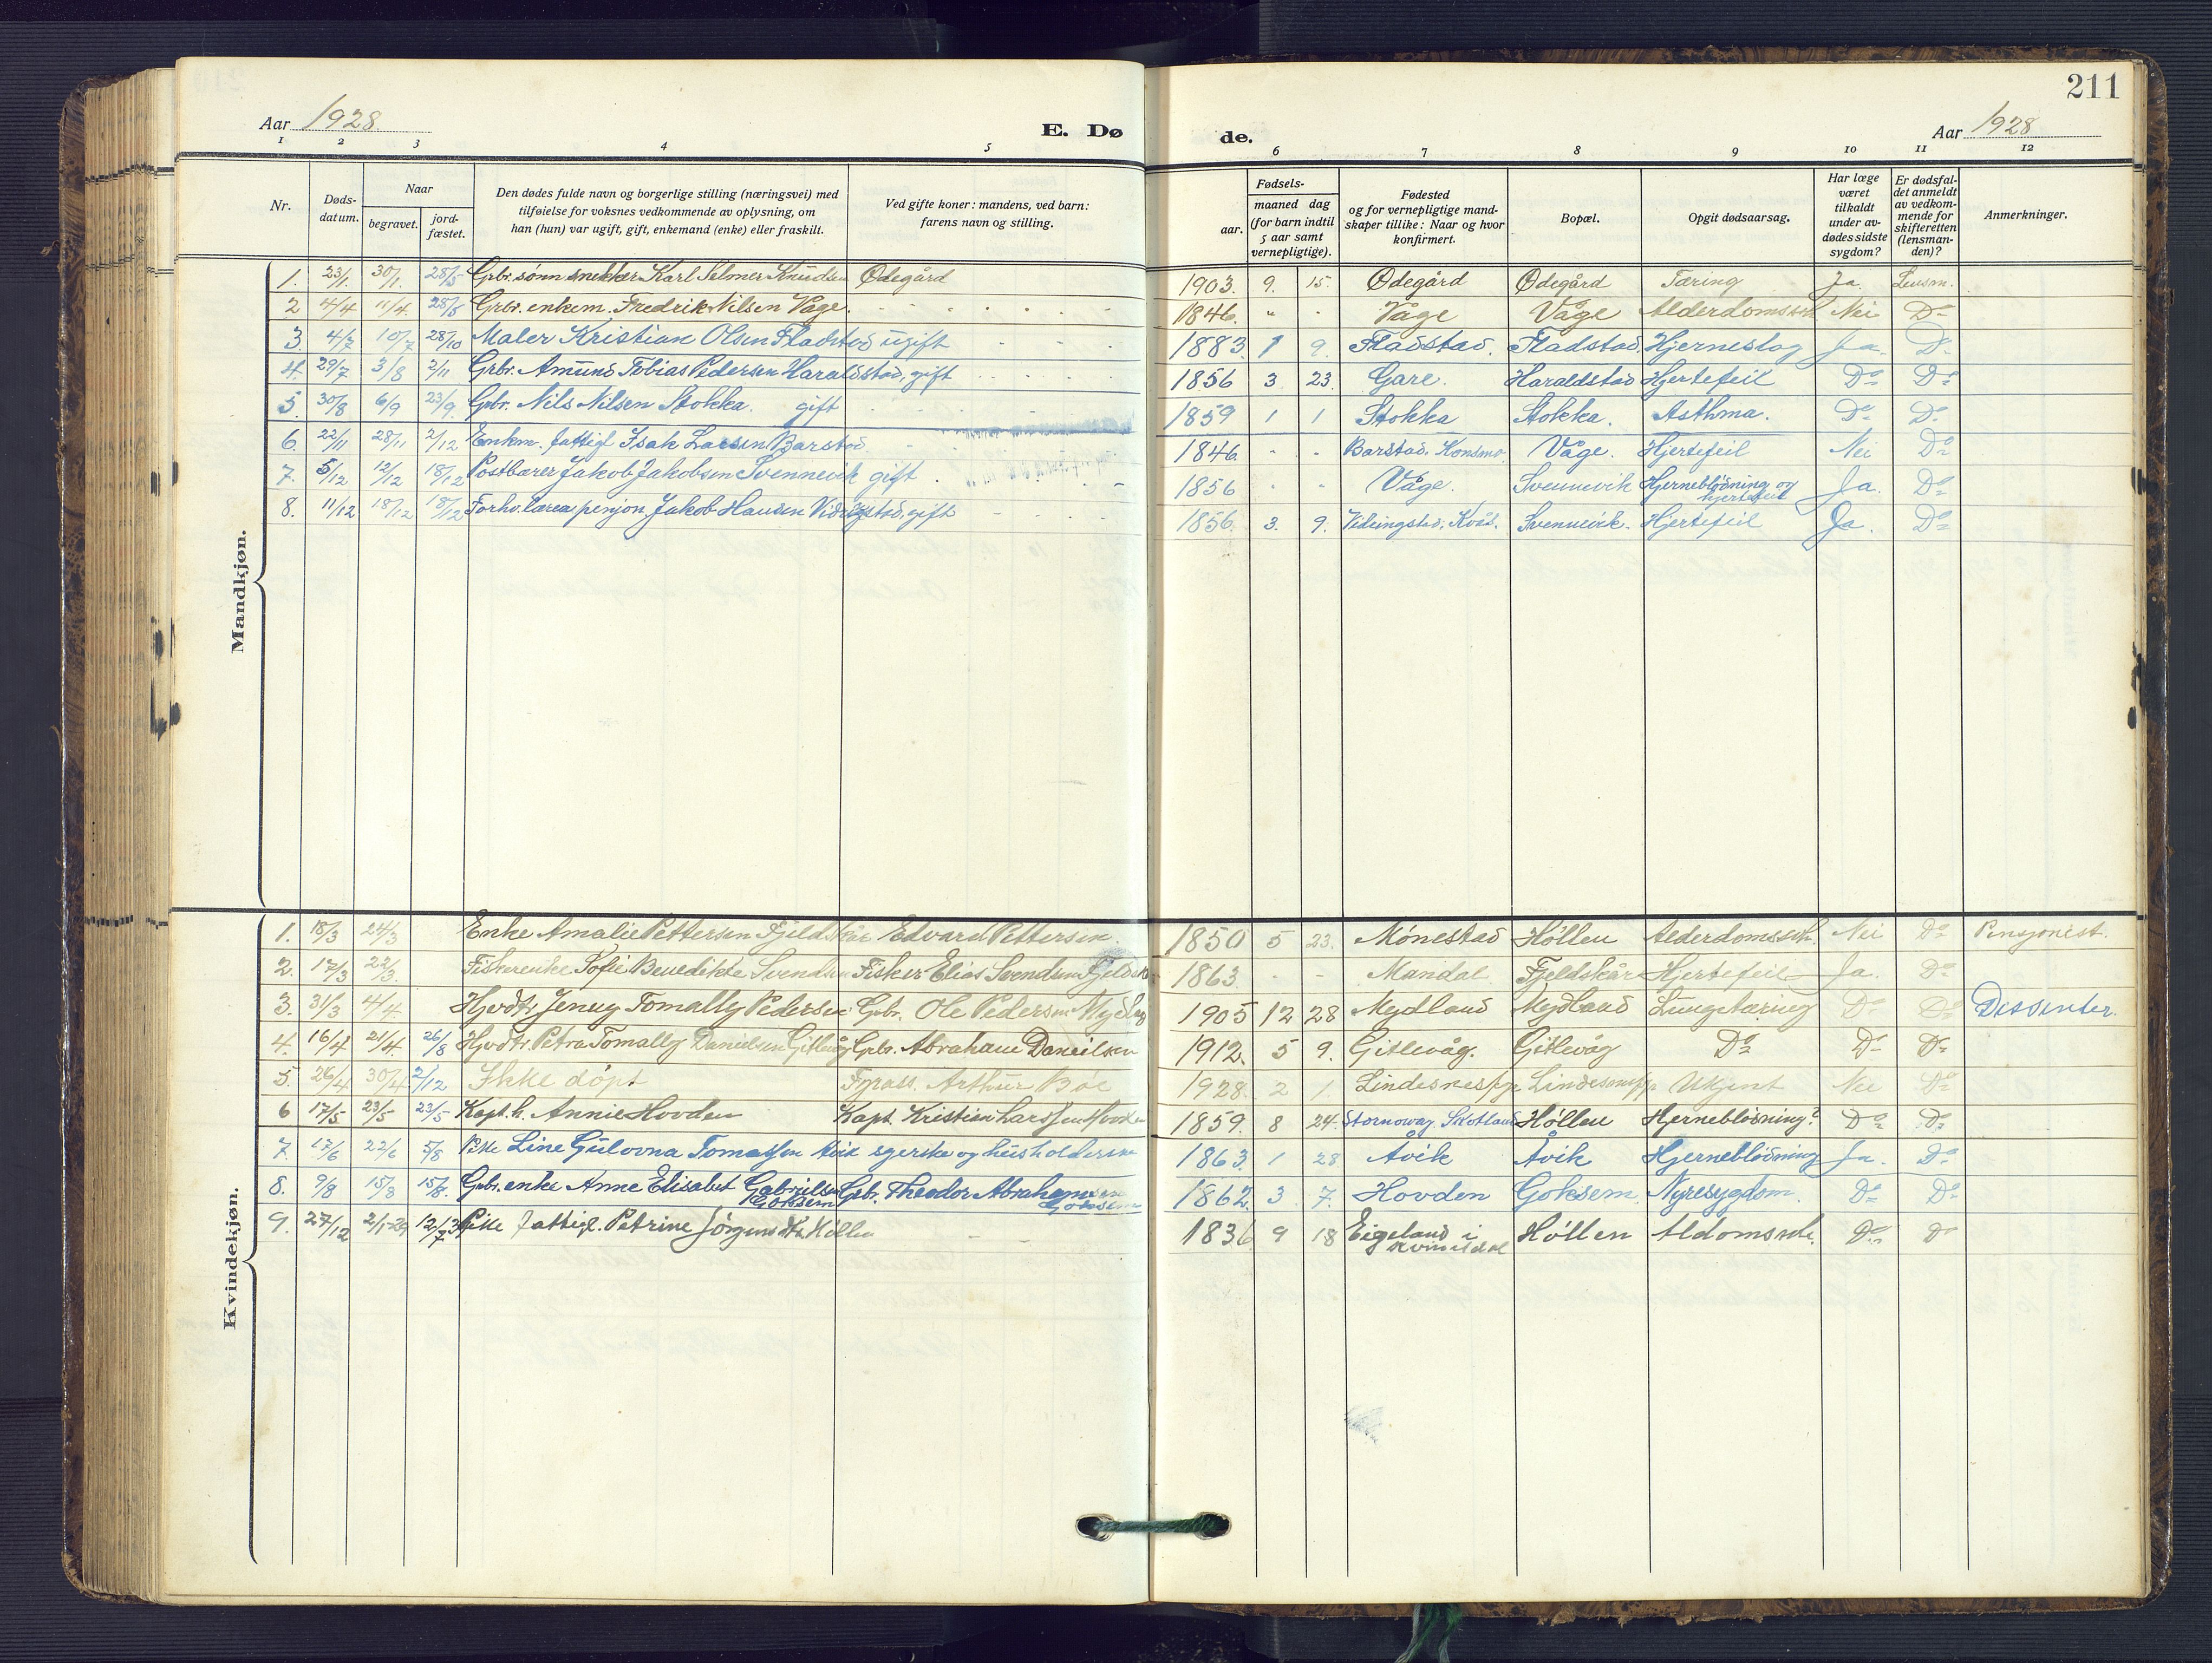 211
Aar 1928
E. Dø
de.
Aar 1928
1 2 3 4 5 6 7 8 9 10 11 12
Nr.
Døds-
datum.
Naar
begravet.
jord-
fæstet.
Den dødes fulde navn og borgerlige stilling (næringsvei) med
tilføielse for voksnes vedkommende av oplysning, om
han (hun) var ugift, gift, enkemand (enke) eller fraskilt.
Ved gifte koner: mandens, ved barn:
farens navn og stilling.
Fødsels-
aar.
maaned dag
(for barn indtil
5 aar samt
vernepligtige).
Fødested
og for vernepligtige mand-
skaper tillike: Naar og hvor
konfirmert.
Bopæl.
Opgit dødsaarsag.
Har læge
været
tilkaldt
under av-
dødes sidste
sygdom?
Er dødsfal-
det anmeldt
av vedkom-
mende for
skifteretten
(lensman-
den)?
Anmerkninger.
Mandkjøn.
1. 23/1. 30/1. 28/5 Grbr. sønn snekker Karl Selmer Knudsen Ødegård 1903. 9. 15. Ødegård Ødegård Tæring Ja. Lensm.
2 4/4 11/4 28/5 Grbr. enkem. Fredrik Nilsen Våge. 1846. " " Våge Våge Alderdomssvk. Nei Do
3. 4/7 10/7 28/10 Maler Kristian Olsen Fladstad ugift 1883 1 9. Fladstad. Fladstad. Hjerneslag Ja. Do
4. 29/7 3/8 2/11 Grbr. Amund Tobias Pedersen Haraldstad, gift 1856 3 23. Gare. Haraldstad Hjertefeil Do Do
5. 30/8 6/9 23/9. Grbr. Nils Nilsen Stokka. gift 1859 1 1 Stokka Stokka. Asthma. Do Do
6. 22/11 28/11 2/12 Enkm. fattigl Isak Larsen Barstad. 1846. - - Barstad. Konsmo. Våge. Hjertefeil Nei Do
7. 5/12 12/12 18/12 Postbærer Jakob Jakobsen Svennevik gift 1856 " " Våge. Svennevik Hjerneblødning og hjertefeil Ja. Do
8. 11/12 18/12 18/12 Forhv. lærer pensjon. Jakob Hansen Vidringstad, gift 1856. 3. 9. Vidringstad. Kvås. Svennevik. Hjertefeil Ja. Do
Kvindekjøn.
1. 18/3 24/3 Enke Amalie Pettersen Fjeldskår Edvard Pettersen. 1850 5 23. Mønestad Høllen Alderdomssvk. Nei Do Pensjonist.
2. 17/3 22/3. Fiskerenke Sofie Benedikte Svendsen Fisker Elias Svendsen Fjeldsk 1863. - - Mandal Fjeldskår Hjertefeil Ja. Do
3. 31/3 4/4 Hjvdtr. Jenny Tomally Pedersen Grbr. Ole Pedersen Mydland 1905 12 28 Mydland Mydland Lungetæring Do Do Dissenter.
4. 16/4 21/4. 26/8 Hjvdtr. Petra Tomally Danielsen Gitlevåg Grbr. Abraham Danielsen 1912. 5 9. Gitlevåg. Gitlevåg Do Do Do
5. 26/4 30/4 2/12 Ikke døpt Fyrass. Arthur Bøe 1928. 2 1. Lindesnes fyr Lindesnes fyr Ukjent Nei Do
6 17/5 23/5 23/5 Kapt. h. Annie Hovden Kapt. Kristian Larssen Hovden 1859. 8 24. Stornoway. Skotland Høllen Hjerneblødning? Do Do
7. 17/6 22/6 5/8 Pike Line Gulovna Tomassen Åvik syerske og husholderske 1863. 1 28 Åvik Åvik Hjerneblødning Ja. Do
8. 9/8 15/8 15/8. Grbr. enke Anne Elisabet Gabrielsen Goksem Grbr. Theodor Abrahamsen Goksem 1862. 3 7. Hovden Goksem. Nyresygdom. Do Do
9. 27/12 2/1-29 12/7 Pike fattigl. Petrine Jørgensdtr. Høllen 1836 9 18 Eigeland i Kvinesdal Høllen Do Do